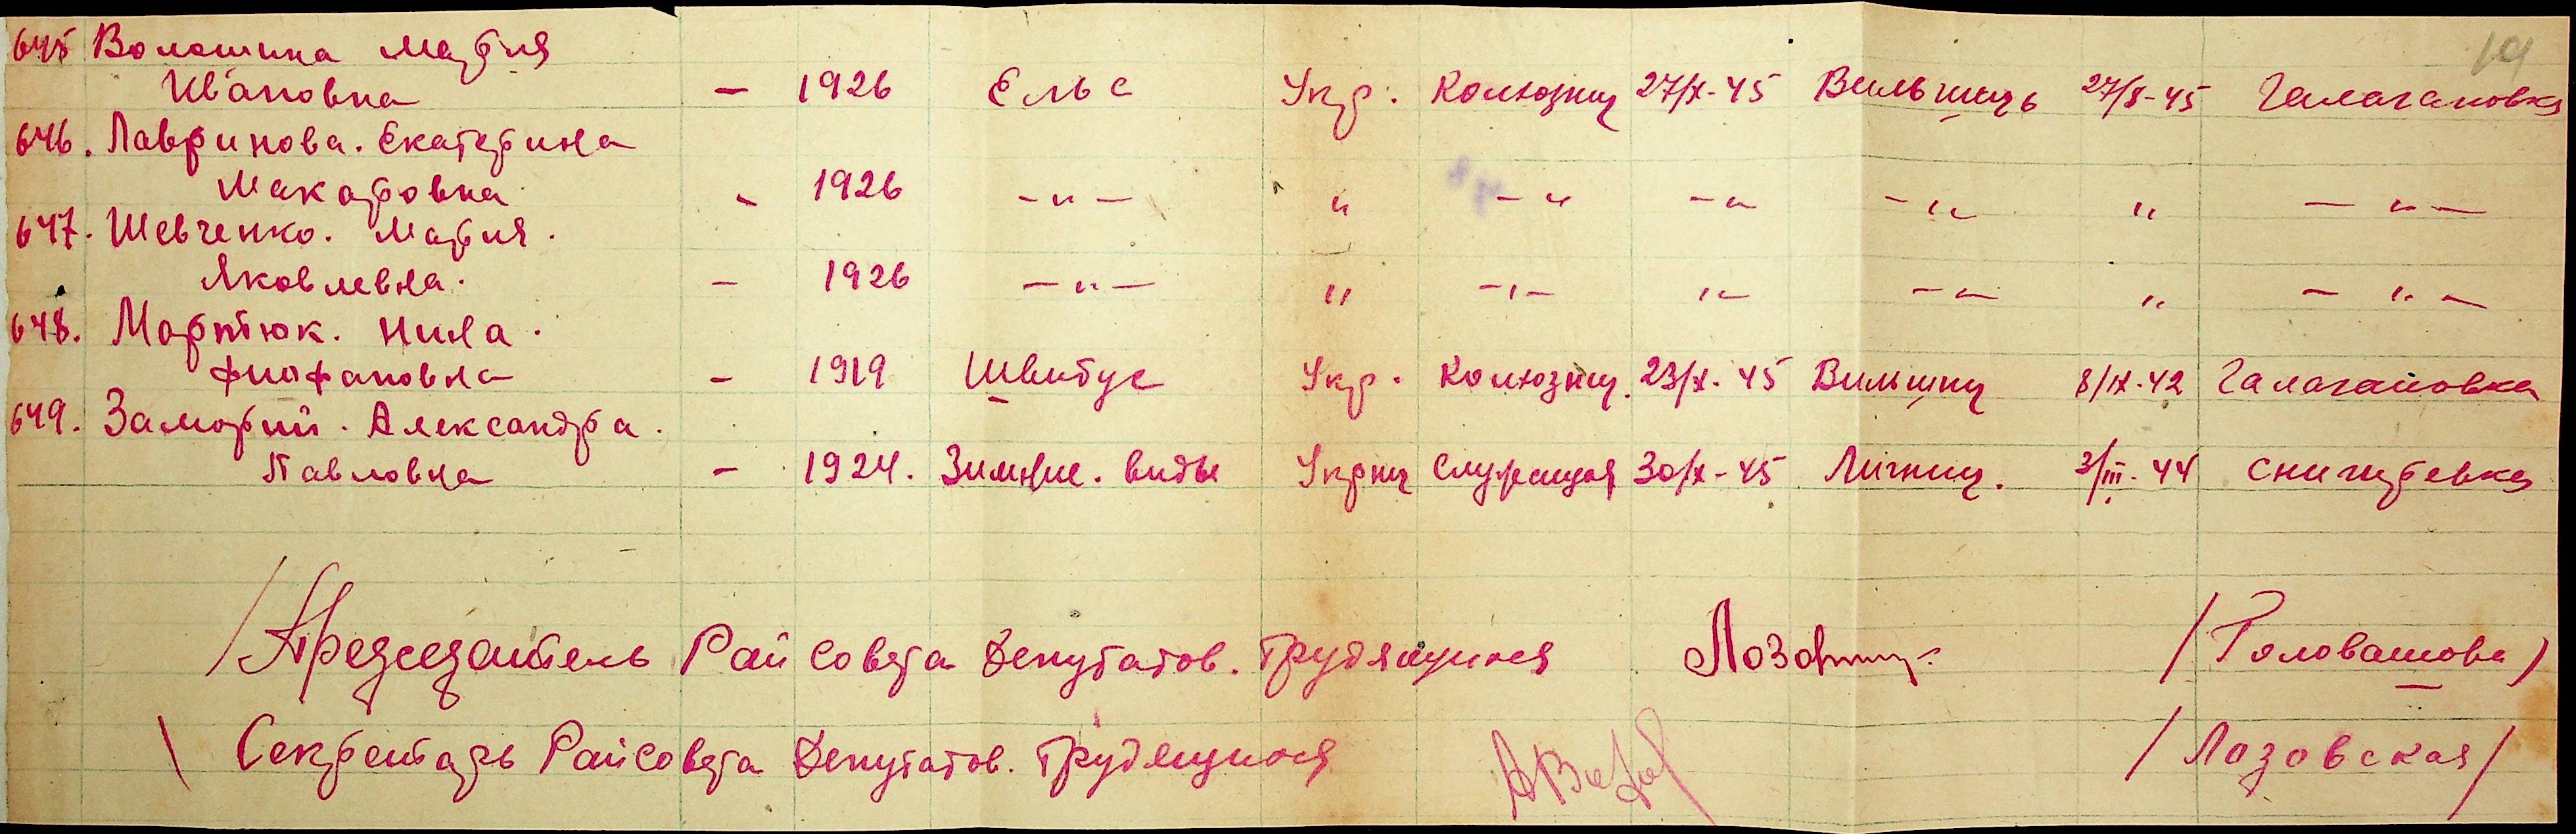 19
645 Волошина Мария
Ивановна — 1926 Ельс Укр. Колхозниц 27/X-45 Вильшиць 27/X-45 Галагановка
646. Лавринова. Екатерина
Макаровна - 1926 —"— " —" —" —"— " —"—
647. Шевченко. Мария.
Яковлевна. — 1926 —"— " —"— "— —"— " —"—
648. Мартюк. Нина.
Фиофановна — 1919 Швибус Укр. Колхозниц. 23/X-45 Вильшиц 8/IX-42 Галагановка
649. Заморий. Александра.
Павловна — 1924. Зимние. виды Укрнц Служащая 30/X-45 Лигниц. 3/III-44 Снигиревка
/Председатель Райсовета Депутатов. Трудящихся /Головашова)
\ Секретарь Райсовета Депутатов. Трудящихся /Лозовская/